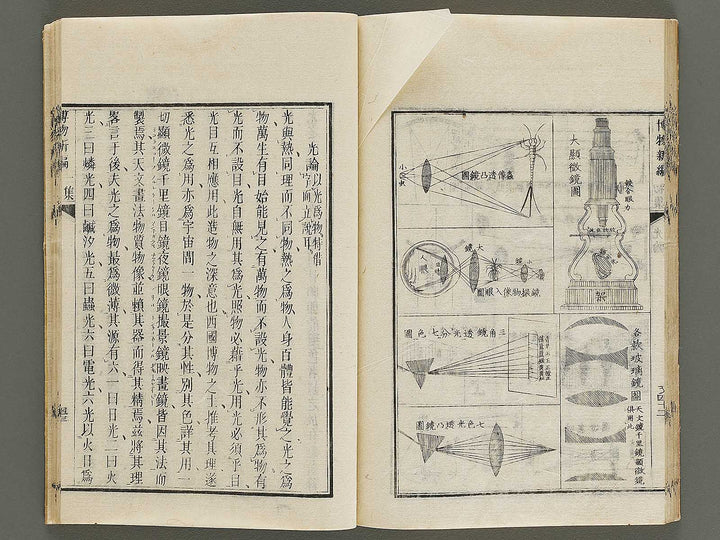 博物新編
大顯微鏡圖
蟲像透凸鏡圖
顯鏡物像入眼圖
三角鏡透光分七色圖
七色光透凸鏡圖
各款玻璃鏡圖
天文鏡千里鏡顯微鏡
俱用此
光論
光與熱同理而不同物熱之爲物人身百體皆能覺之光之爲
物萬生有目始能見之有萬物而不設光物亦不形其爲物有
光而不設目光自無用其爲光照物必藉乎光用光必須乎目
光目互相應用此造物之深意也西國博物之士推考其理遂
悉光之爲用亦爲宇宙間一物於是分其性別其色詳其用一
切顯微鏡千里鏡目鏡夜鏡眼鏡撮景鏡映畫鏡皆因其法而
製焉其天文畫法物質物像並賴其器而得其精焉茲將其理
畧言于後夫光之爲物最爲微薄其源有六一曰日光二曰火
光三曰燐光四曰鹹汐光五曰蟲光六曰電光六光以火日爲
博物新編
一集